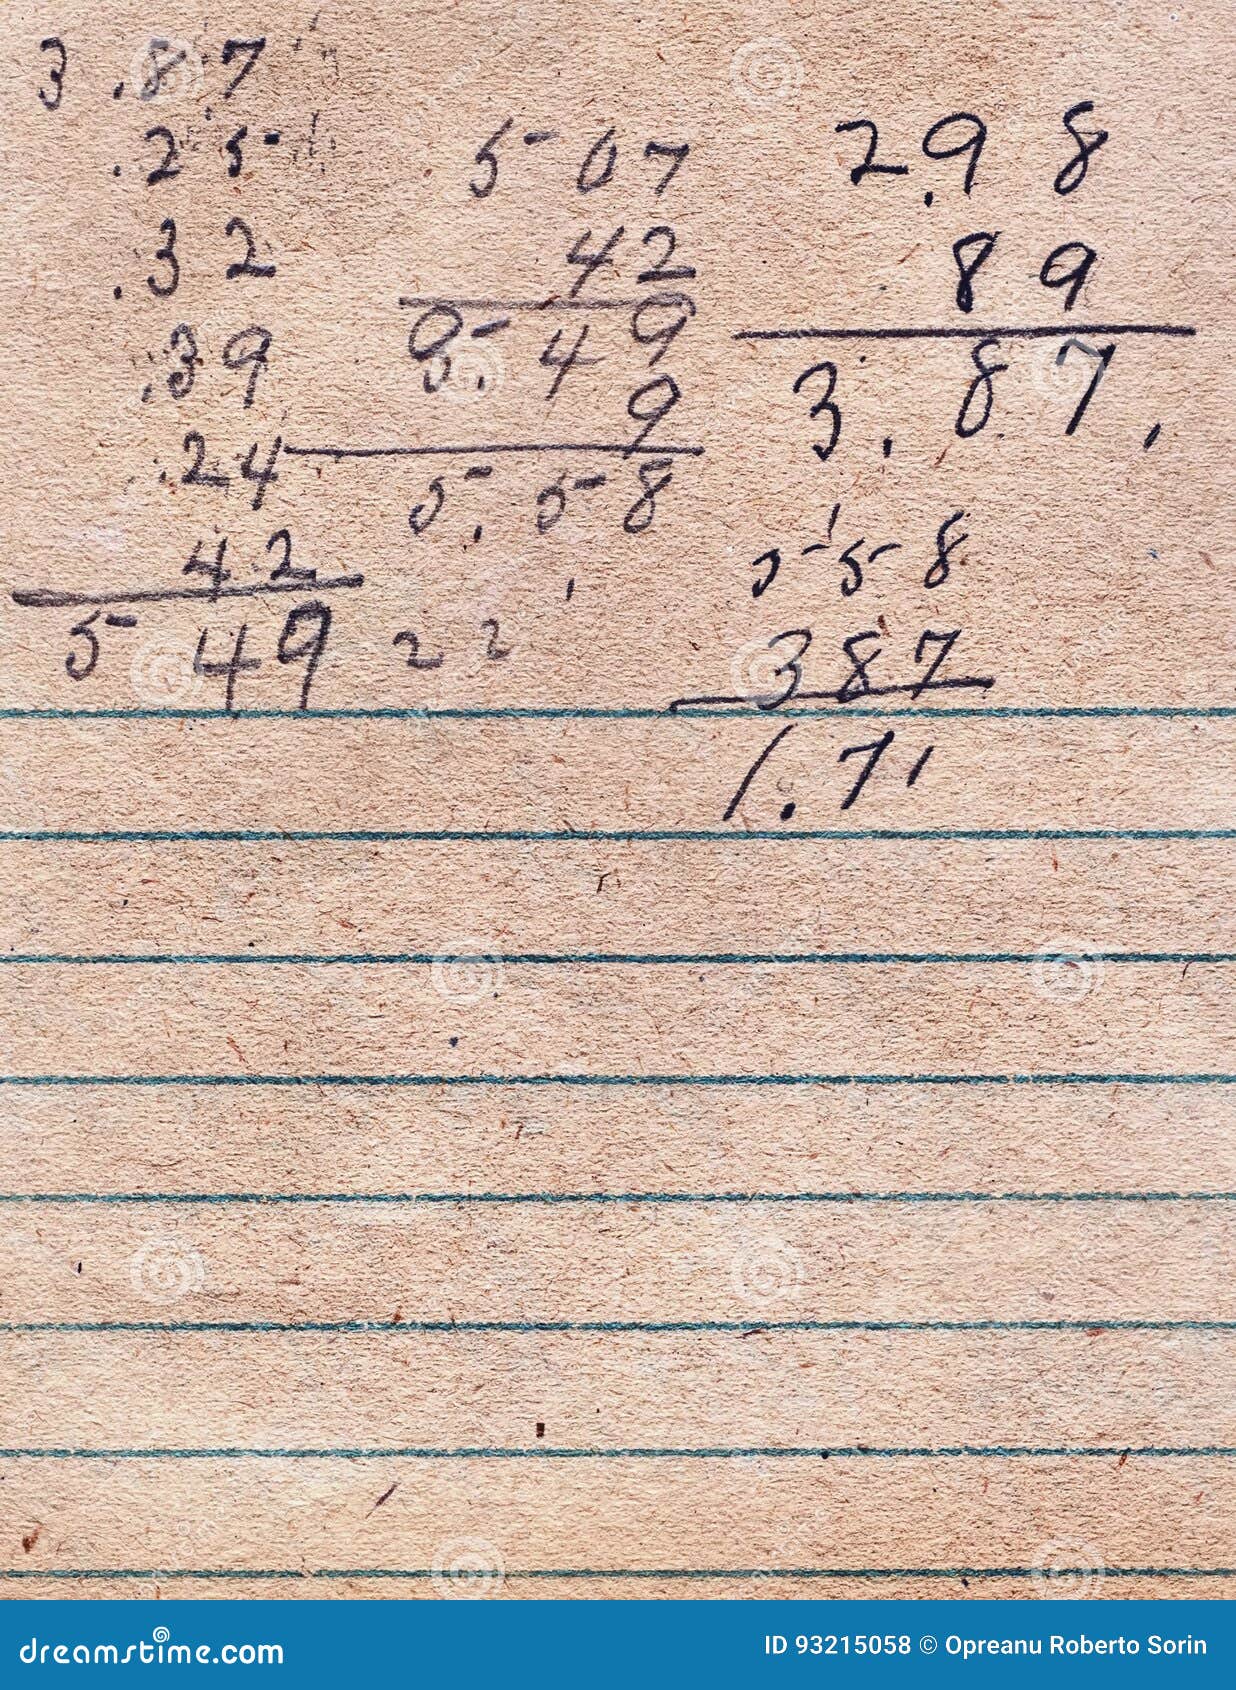 3.87
.25
.32
.39
.24
42
5 49 22
5 07
42
5.49
9
5.58
2.98
89
3.87
5 58
3 87
1.71
dreamstime.com
ID 93215058 © Opreanu Roberto Sorin